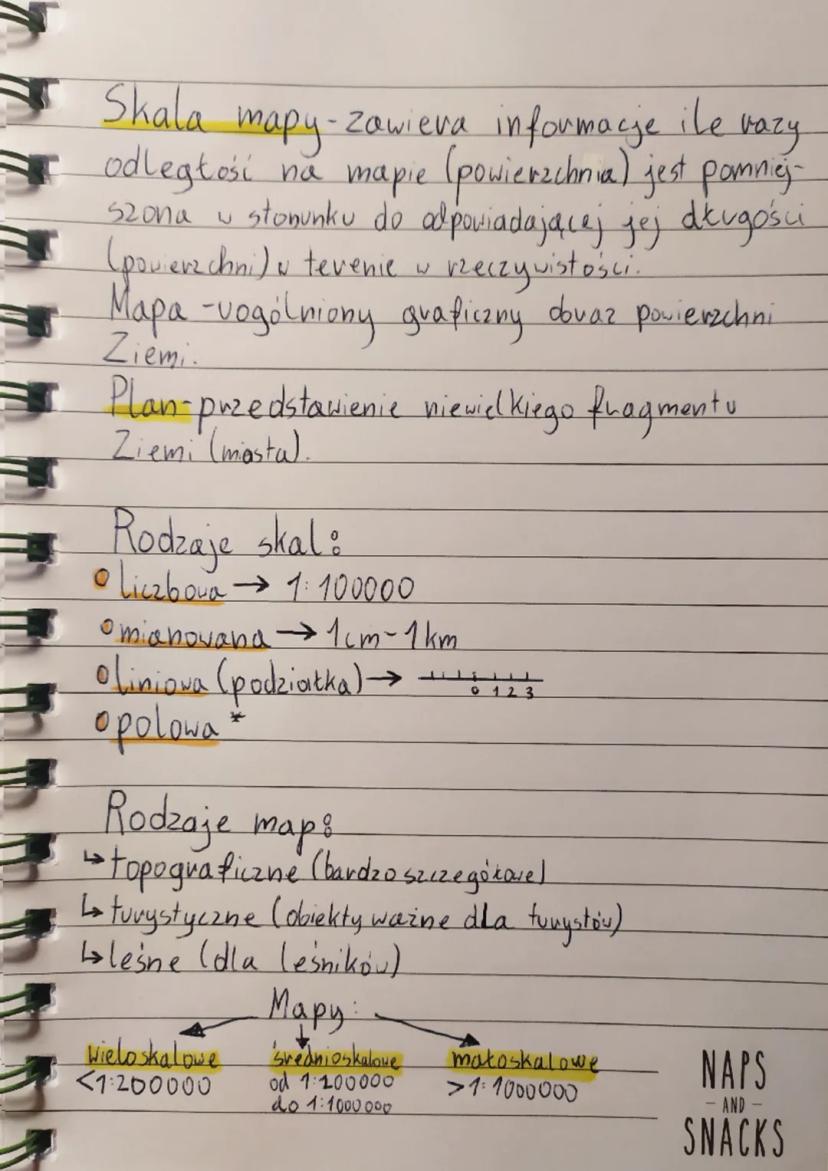 Skala mapy - zawiera informacje ile razy
odległość na mapie (powierzchnia) jest pomniej-
szona w stosunku do odpowiadającej jej długości
(powierzchni) w terenie w rzeczywistości.
Mapa - uogólniony graficzny obraz powierzchni
Ziemi.
Plan - przedstawienie niewielkiego fragmentu
Ziemi (miasta).
Rodzaje skal:
liczbowa → 1:100000
mianowana → 1cm - 1km
liniowa (podziałka) →
0 1 2 3
polowa *
Rodzaje map:
↳ topograficzne (bardzo szczegółowe)
↳ turystyczne (obiekty ważne dla turystów)
↳ leśne (dla leśników)
Mapy:
wieloskalowe średnioskalowe małoskalowe
<1:200000 od 1:200000 >1:1000000
do 1:1000000
NAPS
- AND -
SNACKS